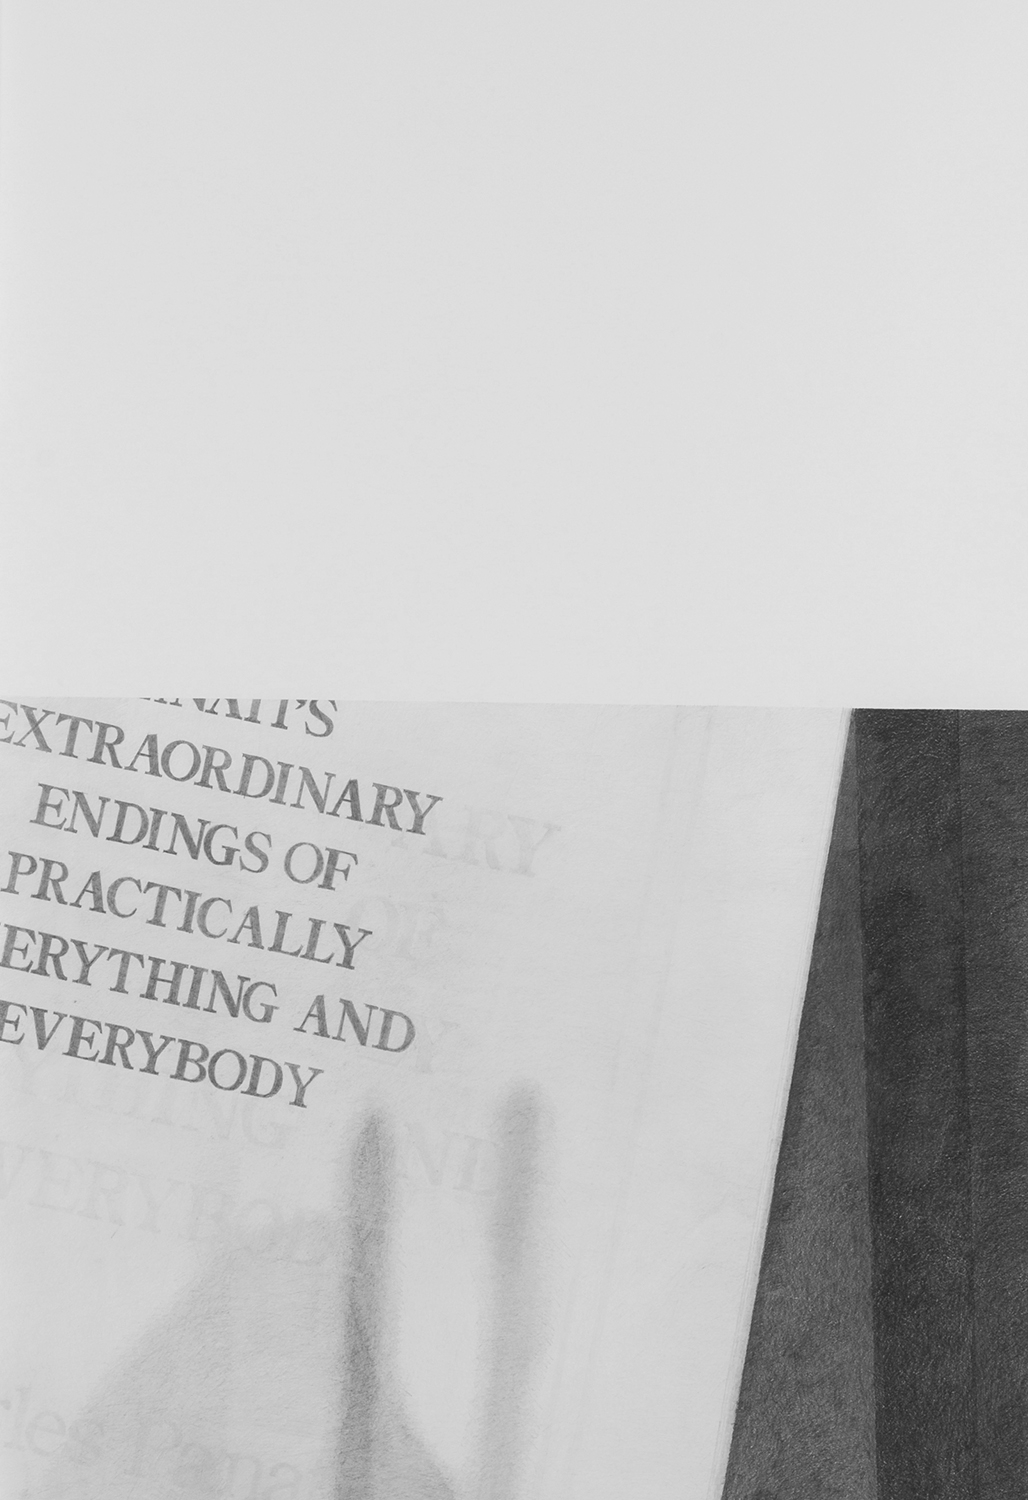 NATI'S
EXTRAORDINARY
ENDINGS OF
PRACTICALLY
ERYTHING AND
EVERYBODY
ARY
OF
Y
YTHING AND
VERYBOD
rles Pana